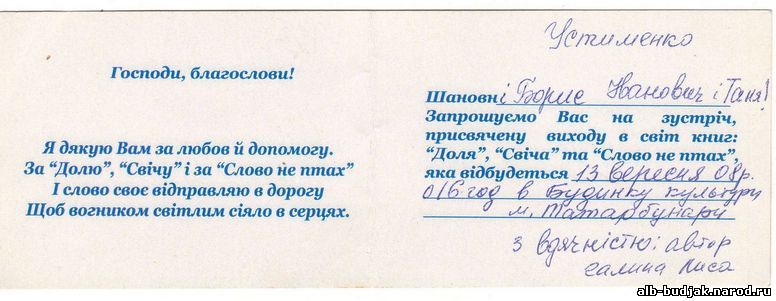 Господи, благослови!
Я дякую Вам за любов й допомогу.
За “Долю”, “Свічу” і за “Слово не птах”
І слово своє відправляю в дорогу
Щоб вогником світлим сіяло в серцях.
Устименко
Шановні Борис Іванович і Таня!
Запрошуємо Вас на зустріч,
присвячену виходу в світ книг:
“Доля”, “Свіча” та “Слово не птах”,
яка відбудеться 13 вересня 08р.
о 16 год в Будинку культури
м. Татарбунари
З вдячністю: автор
Галина Лиса
alb-budjak.narod.ru